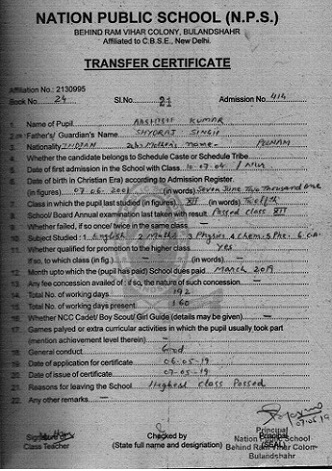 NATION PUBLIC SCHOOL (N.P.S.)
BEHIND RAM VIHAR COLONY, BULANDSHAHR
Affiliated to C.B.S.E., New Delhi.
TRANSFER CERTIFICATE
Affiliation No.: 2130995
Book No. 24 Sl.No. 21 Admission No. 414
1. Name of Pupil KUMAR
2. Father's/ Guardian's Name SINGH
3. Nationality INDIAN 2(b) Mother's name POONAM
4. Whether the candidate belongs to Schedule Caste or Schedule Tribe
5. Date of first admission in the School with Class 4.07.06 /
6. Date of birth in Christian Era) according to Admission Register.
(in figures) 07.06.2001 (in words) Seven June Two Thousand One
7. Class in which the pupil last studied (in figures) XII (in words) Twelfth
8. School/ Board Annual examination last taken with result Passed class XII
9. Whether failed, if so once/ twice in the same class
10. Subject Studied : 1 English 2 Maths 3 Physics 4 Chem. 5 Phe. 6
11. Whether qualified for promotion to the higher class Yes
If so, to which class (in fig.) — (in words) —
12. Month upto which the (pupil has paid) School dues paid March 2019
13. Any fee concession availed of : if so, the nature of such concession —
14. Total No. of working days 192
15. Total No. of working days present 160
16. Whether NCC Cadet/ Boy Scout/ Girl Guide (details may be given) —
17. Games palyed or extra curricular activities in which the pupil usually took part
(mention achievement level therein) —
18. General conduct Good
19. Date of application for certificate 06-05-19
20. Date of issue of certificate 07-05-19
21. Reasons for leaving the School Highest class Passed
22. Any other remarks —
07.05.19
Class Teacher
Checked by
(State full name and designation)
Principal
(SEAL)
Nation Public School
Behind Ram Vihar Colony
Bulandshahr